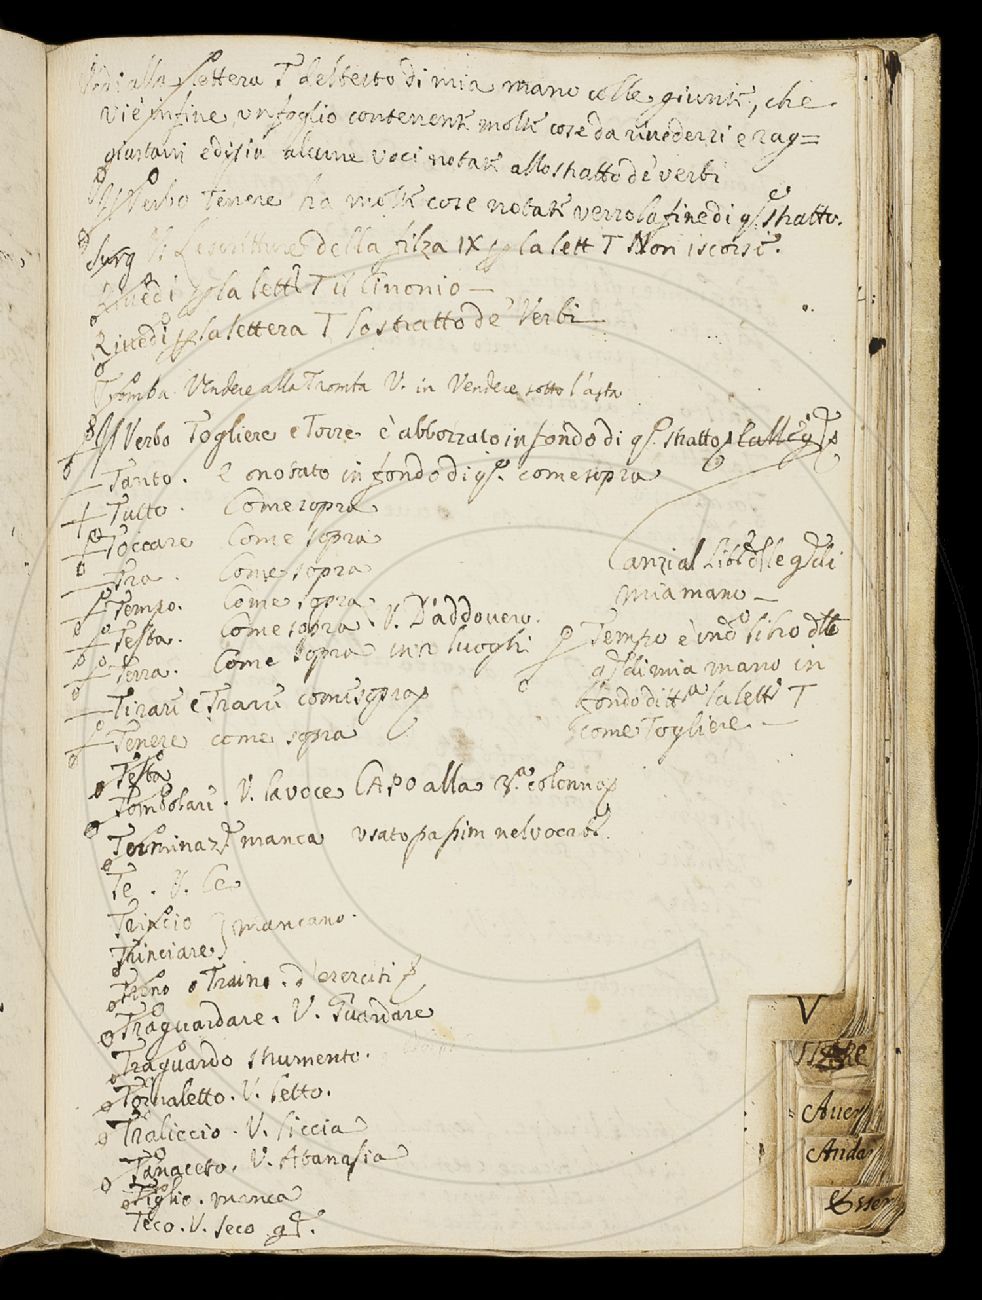 Vedi alla lettera T del testo di mia mano colle giunte, che
vi è infine un foglio contenente molte cose da rivedersi e rag=
giustarsi e di più alcune voci notate allo stratto de verbi
Il Verbo Tenere ha molte cose notate verso la fine di q.o stratto.
le scritture della filza IX p la lett T Non iscorse.
Rivedi p la lett.a T il Cinonio —
Rivedi p la lettera T lo stratto de' Verbi
Tromba. Vendere alla Tromba V. in Vendere sotto l'asta
Il Verbo Togliere e Torre è abbozzato in fondo di q.o stratto
Tanto. È notato in fondo di q.o come sopra
Tutto. Come sopra
Toccare Come sopra
Tra. Come sopra
Tempo. Come sopra
Testa. Come sopra V. D'addovero.
Terra. Come sopra in 2 luoghi
Tirare e Trarre come sopra
Tenere come sopra
Canzi al Lib.o delle g di
mia mano —
Tempo è in d.o libro delle
g di mia mano in
fondo di tt.a la lett.a T
come Togliere —
Testa
Tombolare. V. la voce CAPO alla 3.a colonna
Terminaz.e manca usato passim nel vocab.
Te. V. Ce
Trincio } mancano.
Trinciare
Treno o Traino. d'eserciti
Traguardare. V. Guardare
Traguardo strumento.
Tornaletto. V. letto.
Traliccio. V. liccia
Tanaceto. V. Atanasia
Tiglio. manca
Teco. V. seco
V
Aver
Anda
Esser